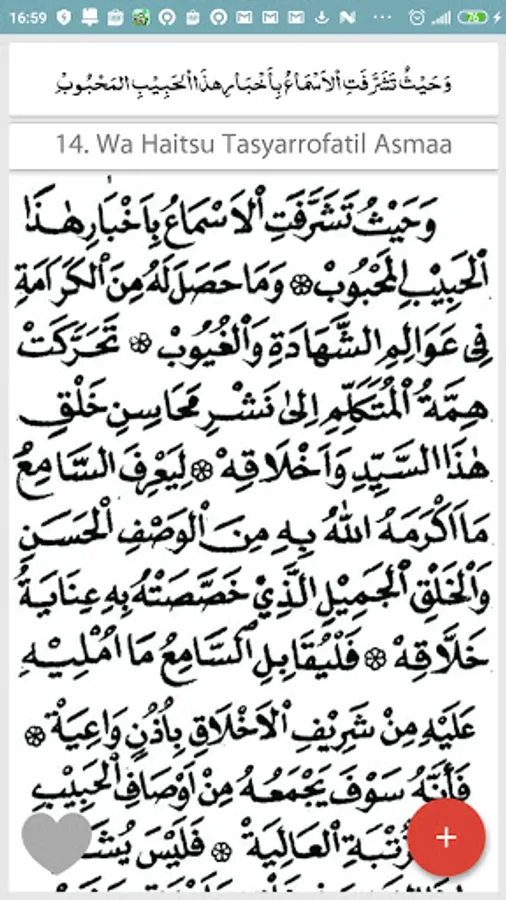 16:59
76
وَحَيْثُ تَشَرَّفَتِ اْلاَسْمَاعُ بِأَخْبَارِ هٰذَا الْحَبِيْبِ المَحْبُوْبِ
14. Wa Haitsu Tasyarrofatil Asmaa
وَحَيْثُ تَشَرَّفَتِ اْلاَسْمَاعُ بِاَخْبَارِ هٰذَا
الْحَبِيْبِ الْمَحْبُوْبِ ۞ وَمَا حَصَلَ لَهُ مِنَ الْكَرَامَةِ
فِى عَوَالِمِ الشَّهَادَةِ وَالْغُيُوْبِ ۞ تَحَرَّكَتْ
هِمَّةُ الْمُتَكَلِّمِ اِلىٰ نَشْرِ مَحَاسِنِ خَلْقِ
هٰذَا السَّيِّدِ وَاَخْلَاقِهْ ۞ لِيَعْرِفَ السَّامِعُ
مَا اَكْرَمَهُ اللهُ بِهِ مِنَ الْوَصْفِ الْحَسَنِ
وَالْخَلْقِ الْجَمِيْلِ الَّذِيْ خَصَّصَتْهُ بِهِ عِنَايَةُ
خَلَّاقِهْ ۞ فَلْيُقَابِلِ السَّامِعُ مَا اُمْلِيْهِ
عَلَيْهِ مِنْ شَرِيْفِ اْلاَخْلَاقِ بِاُذُنٍ وَاعِيَةْ ۞
فَاَنَّهُ سَوْفَ يَجْمَعُهُ مِنْ اَوْصَافِ الْحَبِيْبِ
الْعَالِيَةْ ۞ فَلَيْسَ